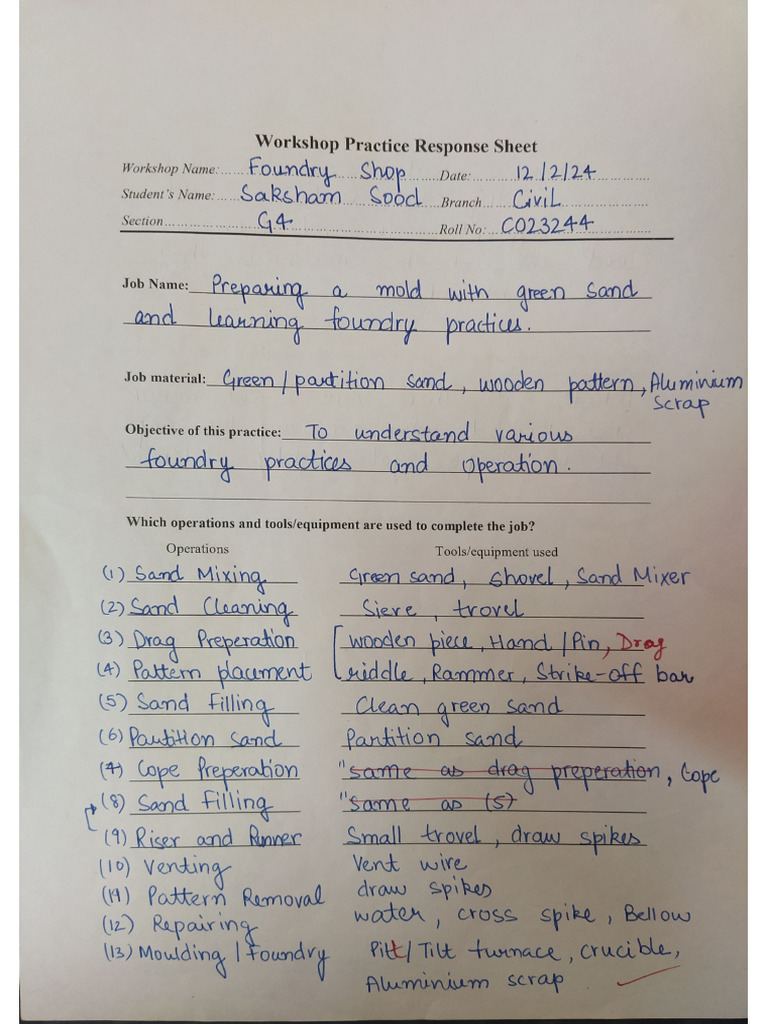 Workshop Practice Response Sheet
Workshop Name: Foundry Shop Date: 12/2/24
Student's Name: Saksham Sood Branch Civil
Section G4 Roll No: CO23244
Job Name: Preparing a mold with green sand
and learning foundry practices.
Job material: Green/partition sand, wooden pattern, Aluminium
scrap
Objective of this practice: To understand various
foundry practices and operation.
Which operations and tools/equipment are used to complete the job?
Operations Tools/equipment used
(1) Sand Mixing Green sand, shovel, Sand Mixer
(2) Sand Cleaning Sieve, trovel
(3) Drag Preperation wooden piece, Hand/Pin, Drag
(4) Pattern placement riddle, Rammer, Strike-off bar
(5) Sand filling Clean green sand
(6) Partition sand Partition sand
(7) Cope Preperation "same as drag preperation, Cope
(8) Sand filling "same as (5)
(9) Riser and Runner Small trovel, draw spikes
(10) Venting Vent wire
(11) Pattern Removal draw spikes
(12) Repairing water, cross spike, Bellow
(13) Moulding/Foundry Pitt/Tilt furnace, crucible,
Aluminium scrap